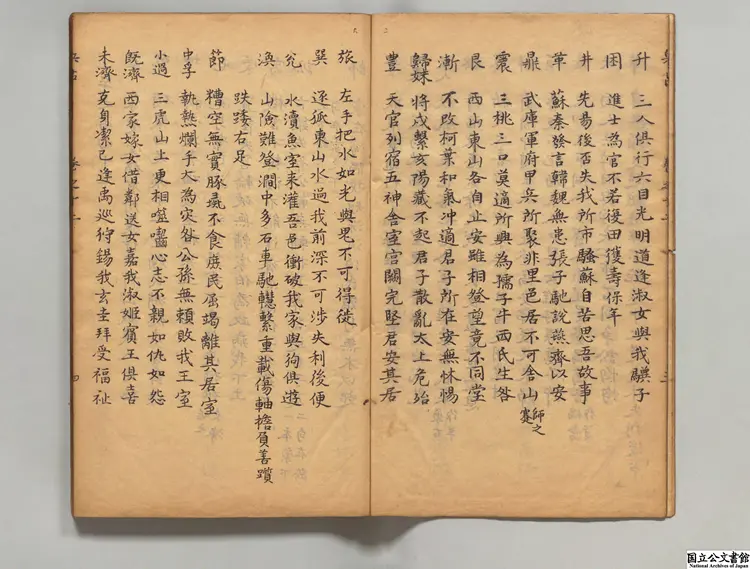 升 三人俱行六目光明道逢淑女與我驥子
困 進士為官不若復田獲壽保年
井 先易後否失我所市騷蘇自苦思吾故事
革 蘇秦發言韓魏無患張子馳說燕齊以安
鼎 武庫軍府甲兵所聚非里邑居不可舍山師之蹇
震 三桃三口莫適所與為孺子牛西氏生咎
艮 西山東山各自止安雖相登望竟不同堂
漸 不改柯葉和氣冲適君子所在安無怵惕
歸妹 將戍繫亥陽藏不起君子散亂太上危殆
豐 天官列宿五神舍室宮闕完堅君安其居
旅 左手把水如光與鬼不可得徙
巽 逐狐東山水過我前深不可涉失利後便
兌 水瀆魚室來灌吾邑衝破我家與狗俱遊
渙 山險難登澗中多石車馳轊繫重載傷軸擔負善躓
跌踒右足
節 糟空無實豚彘不食庶民屈竭離其居室
中孚 執熱爛手大為灾咎公孫無賴敗我王室
小過 三虎山上更相噬嚙心志不親如仇如怨
既濟 西家嫁女借鄰送女嘉我淑姬賓主俱喜
未濟 克身潔己逢禹巡狩錫我玄圭拜受福祉
三
四
国立公文書館
National Archives of Japan